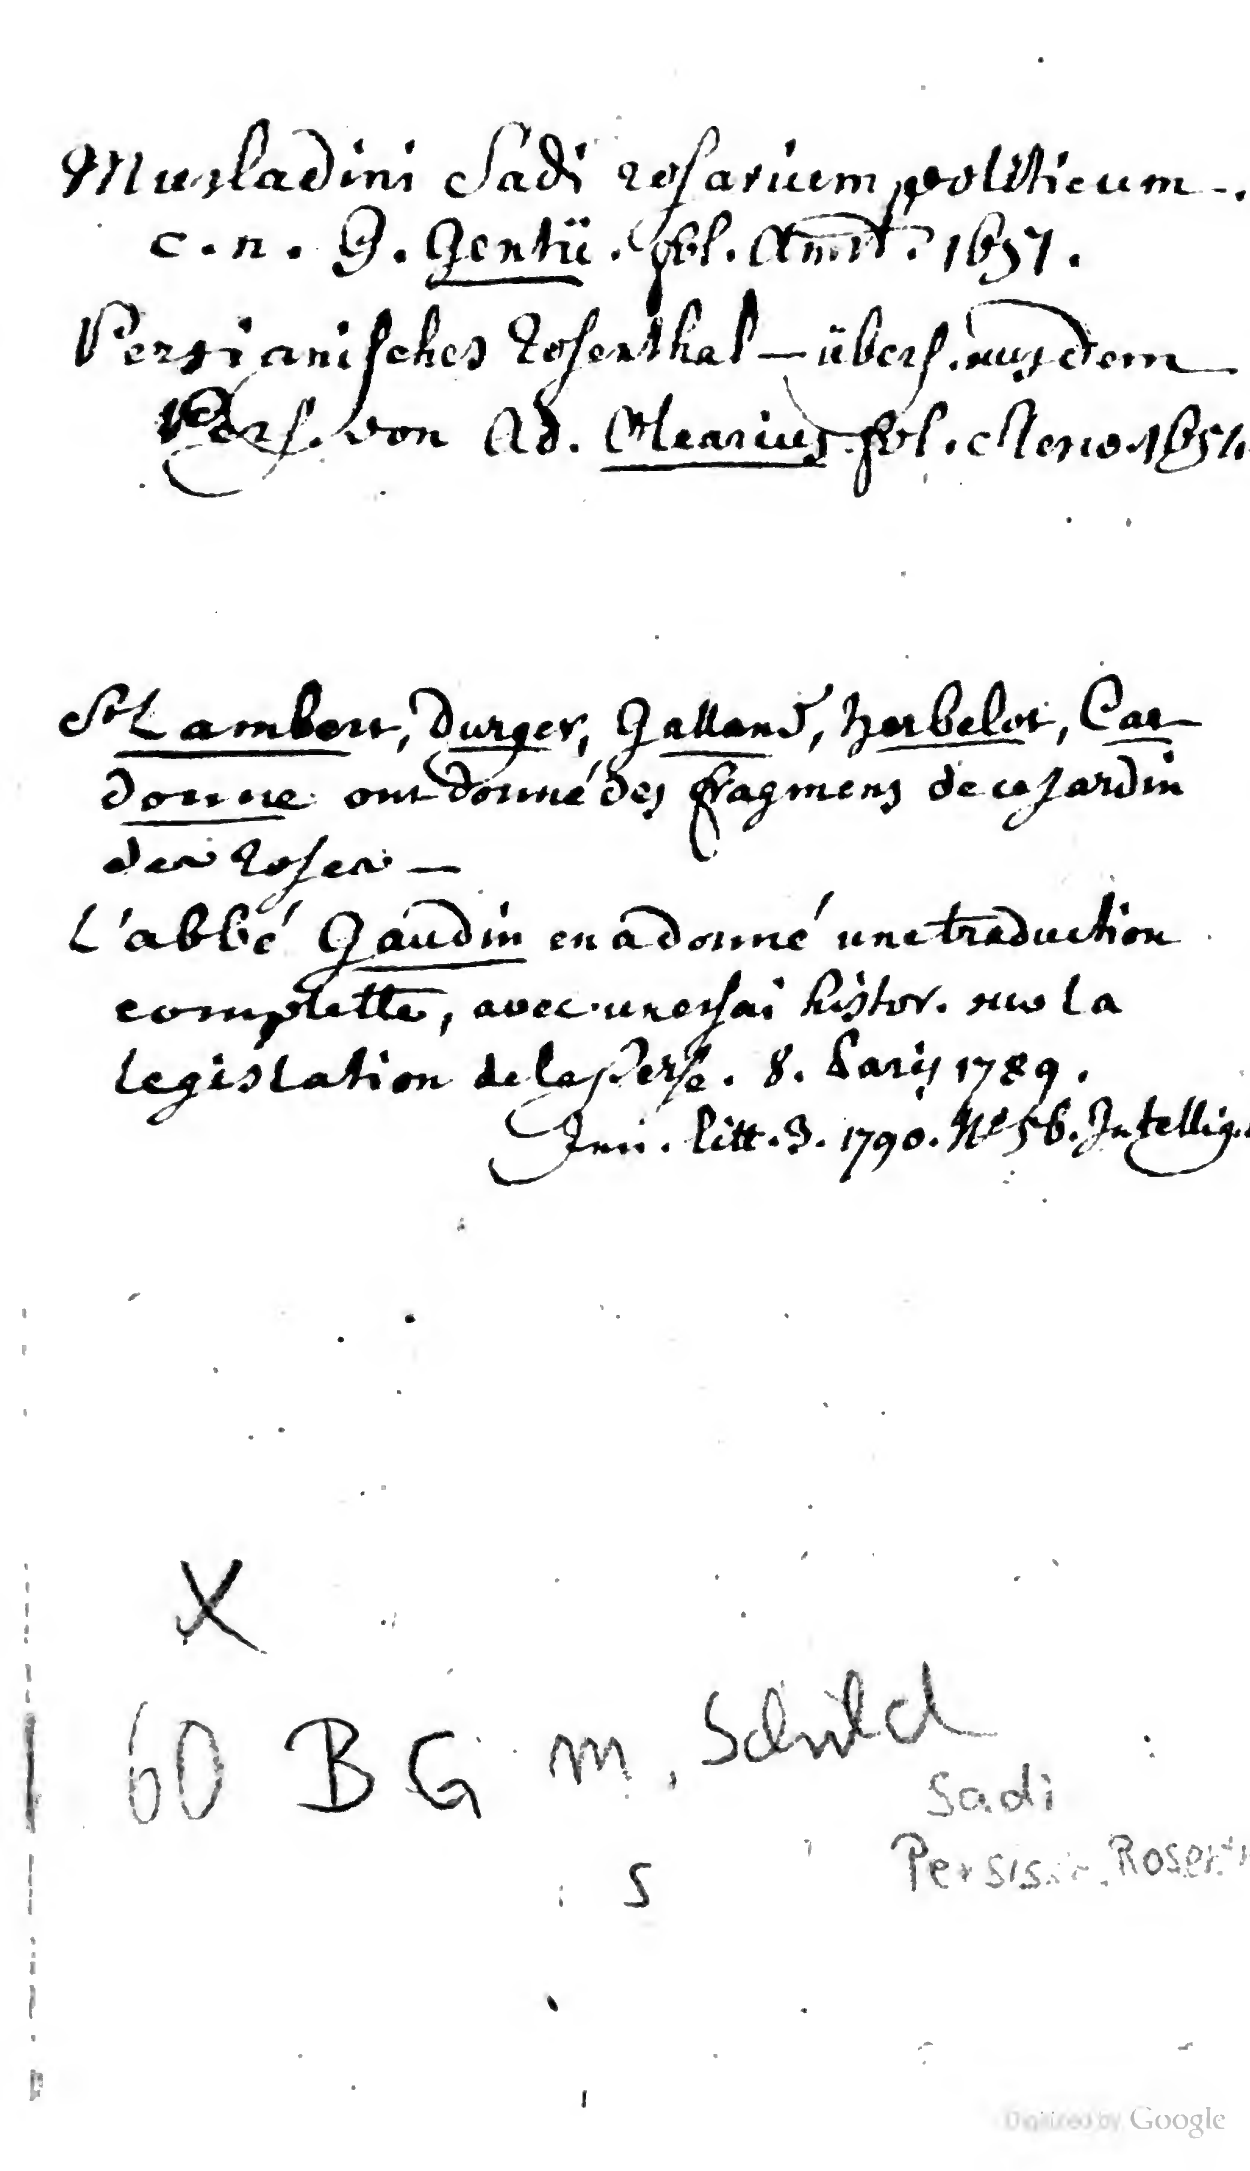 Musladini Sadi rosarium politicum -.
c. n. G. Gentii. fol. Amst. 1651.
Persianisches Rosenthal — übers. aus dem
Pers. von Ad. Olearius fol. 1654
St Lambert, Durger, Galland, Herbelot, Car-
donne ont donné des fragmens de ce Jardin
des Roses —
L'abbé Gaudin en a donné une traduction
complette, avec un essai histor. sur la
legislation de la Perse. 8. Paris 1789.
litt. Z. 1790. No 56. Intellig.
X
60 BG m. Schild
Sadi
Persisch. Rosent
S
Digitized by Google